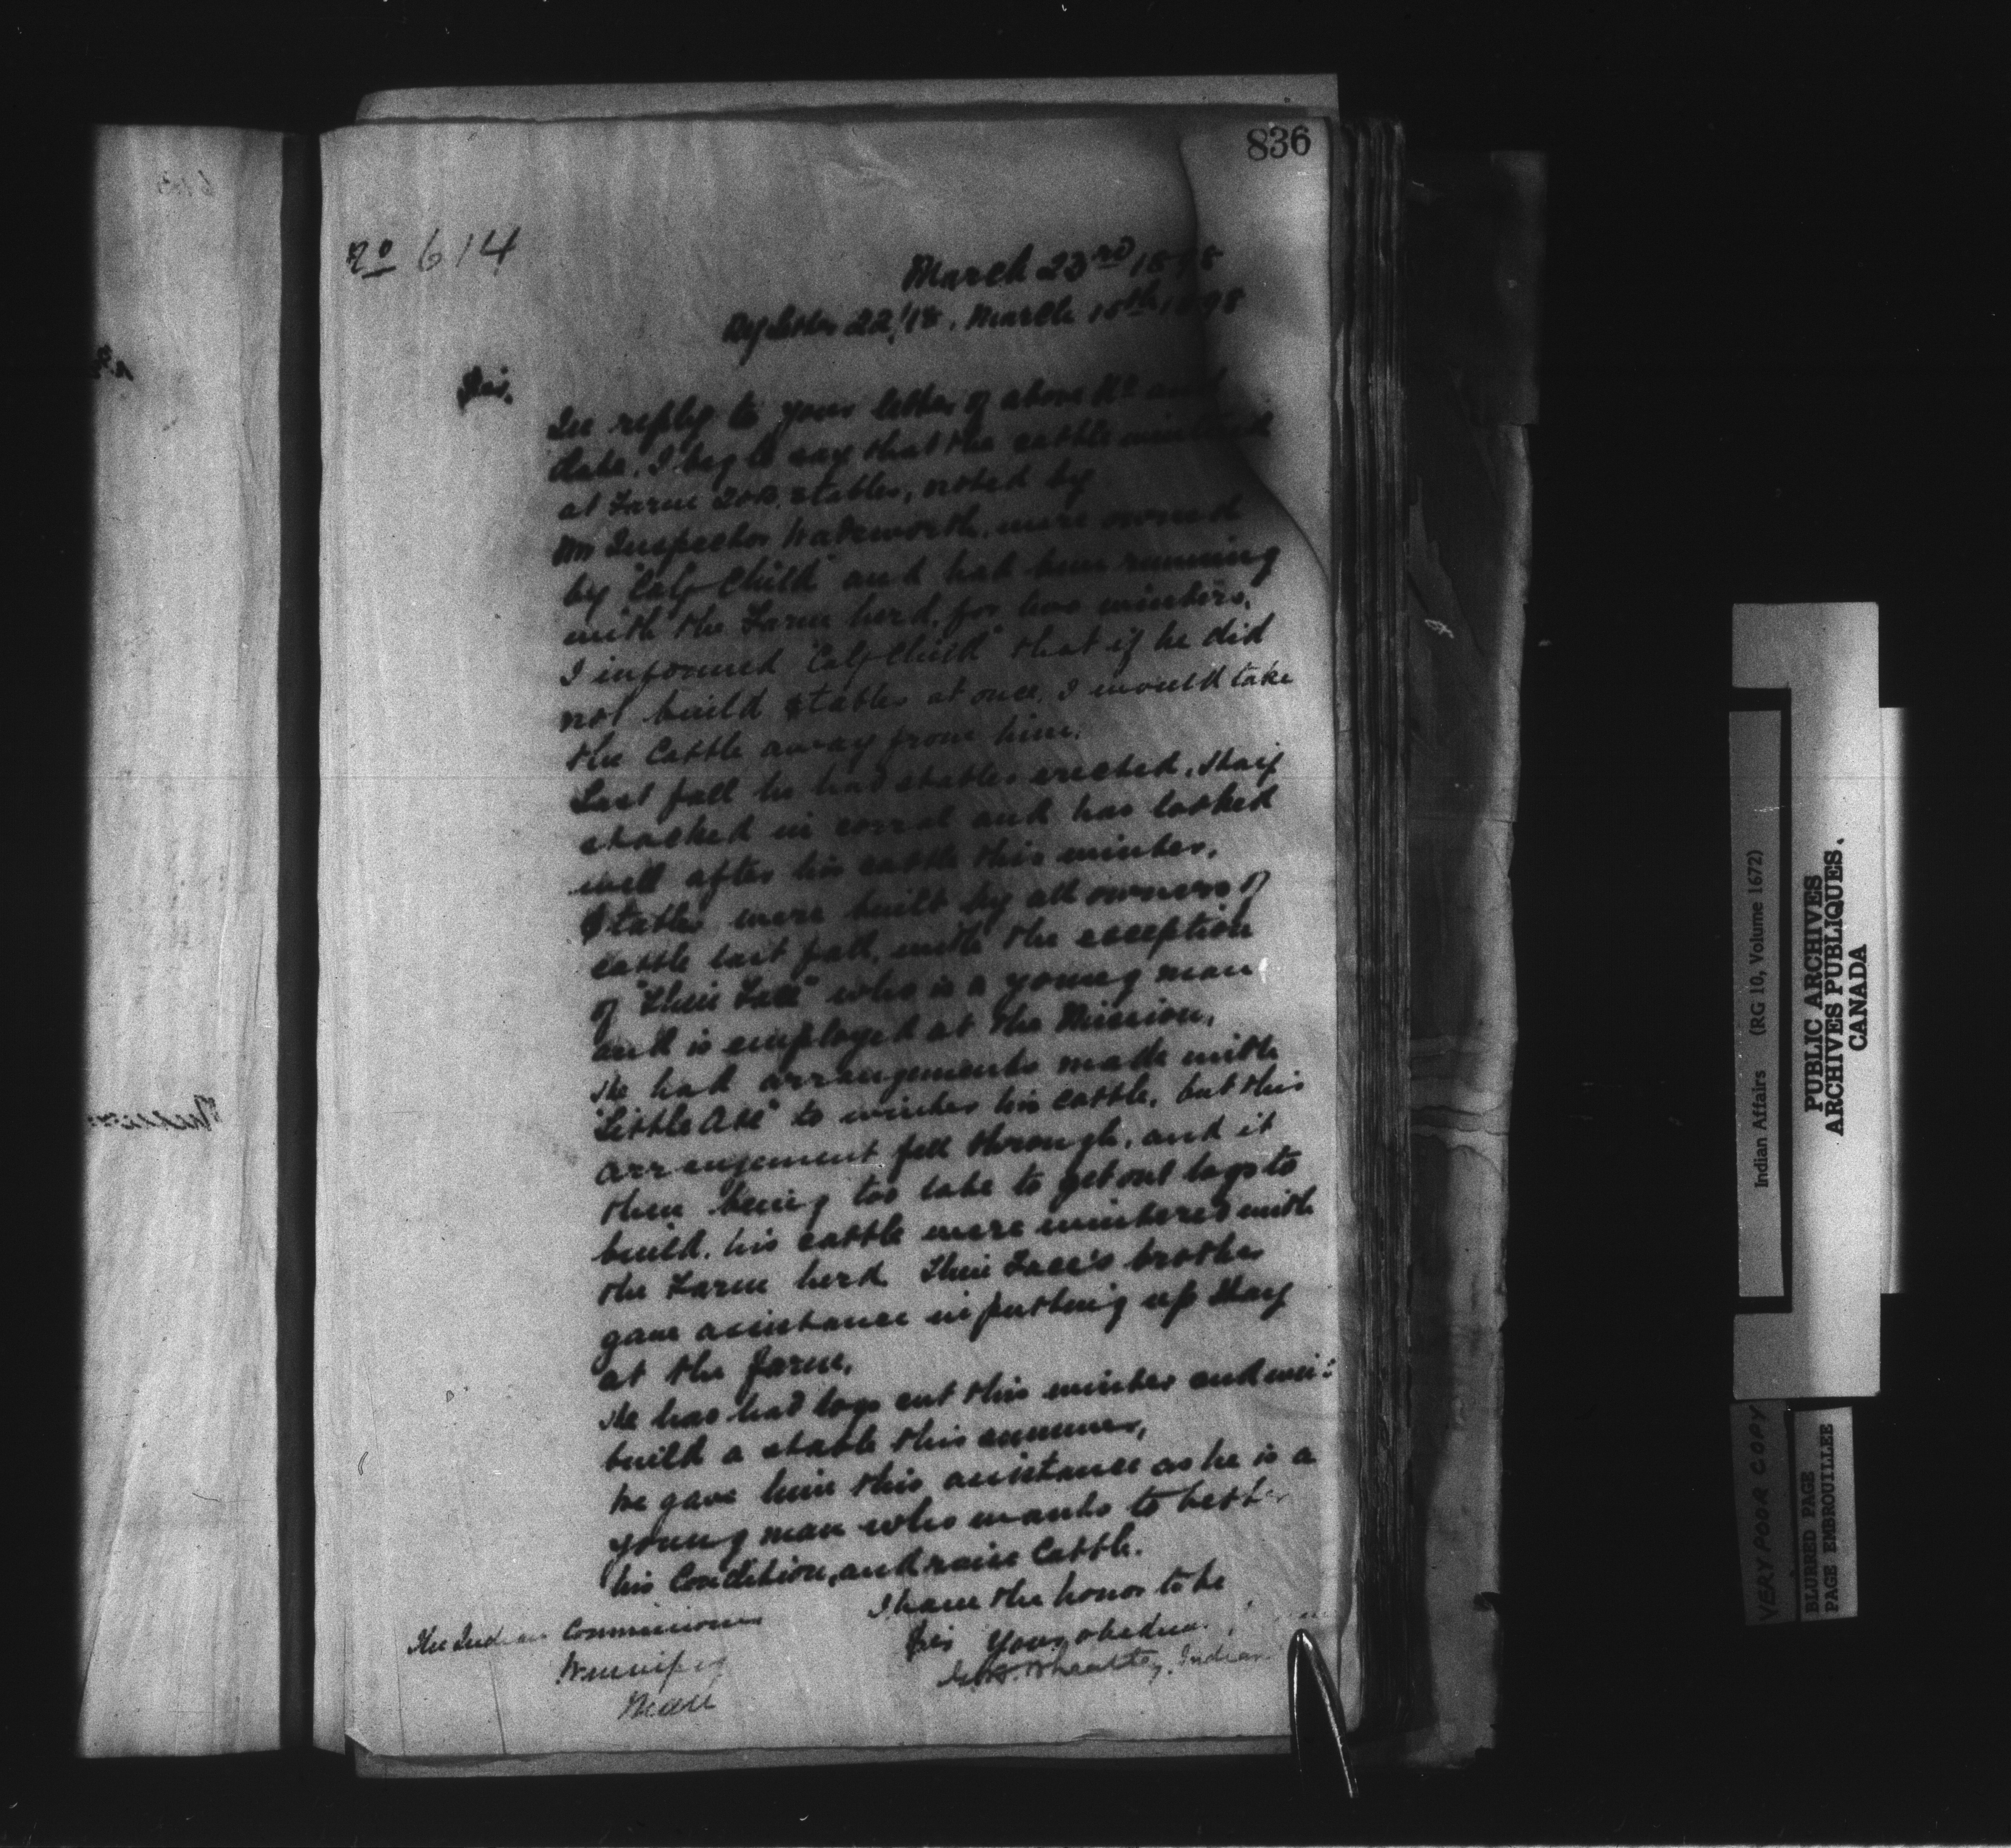 836
No 614
March 23rd 1898
Ref letter 22/18. March 15th 1898
Sir.
In reply to your letter of above No and
date. I beg to say that the cattle wintered
at Farm 20B. stables, noted by
Mr Inspector Wadsworth, were owned
by "Calf Child" and had been running
with the Farm herd, for two winters.
I informed "Calf Child" that if he did
not build stables at once, I would take
the Cattle away from him.
Last fall he had stables erected, Hay
stacked in corral and has looked
well after his cattle this winter.
Stables were built by all owners of
cattle last fall, with the exception
of "Thin Face" who is a young man
and is employed at the Mission,
He had arrangements made with
"Little Axe" to winter his cattle, but this
arrangement fell through, and it
then being too late to get out logs to
build, his cattle were wintered with
the Farm herd. Thin Face's brother
gave assistance in putting up Hay
at the farm.
He has had logs cut this winter and wi
build a stable this summer,
We gave him this assistance as he is a
young man who wants to better
his Condition, and raise Cattle.
I have the honor to be
Sir Your obedien
Wheatley, Indian
The Indian Commissioner
Winnipeg
Man
Indian Affairs (RG 10, Volume 1672)
PUBLIC ARCHIVES
ARCHIVES PUBLIQUES.
CANADA
VERY POOR COPY
BLURRED PAGE
PAGE EMBROUILLEE